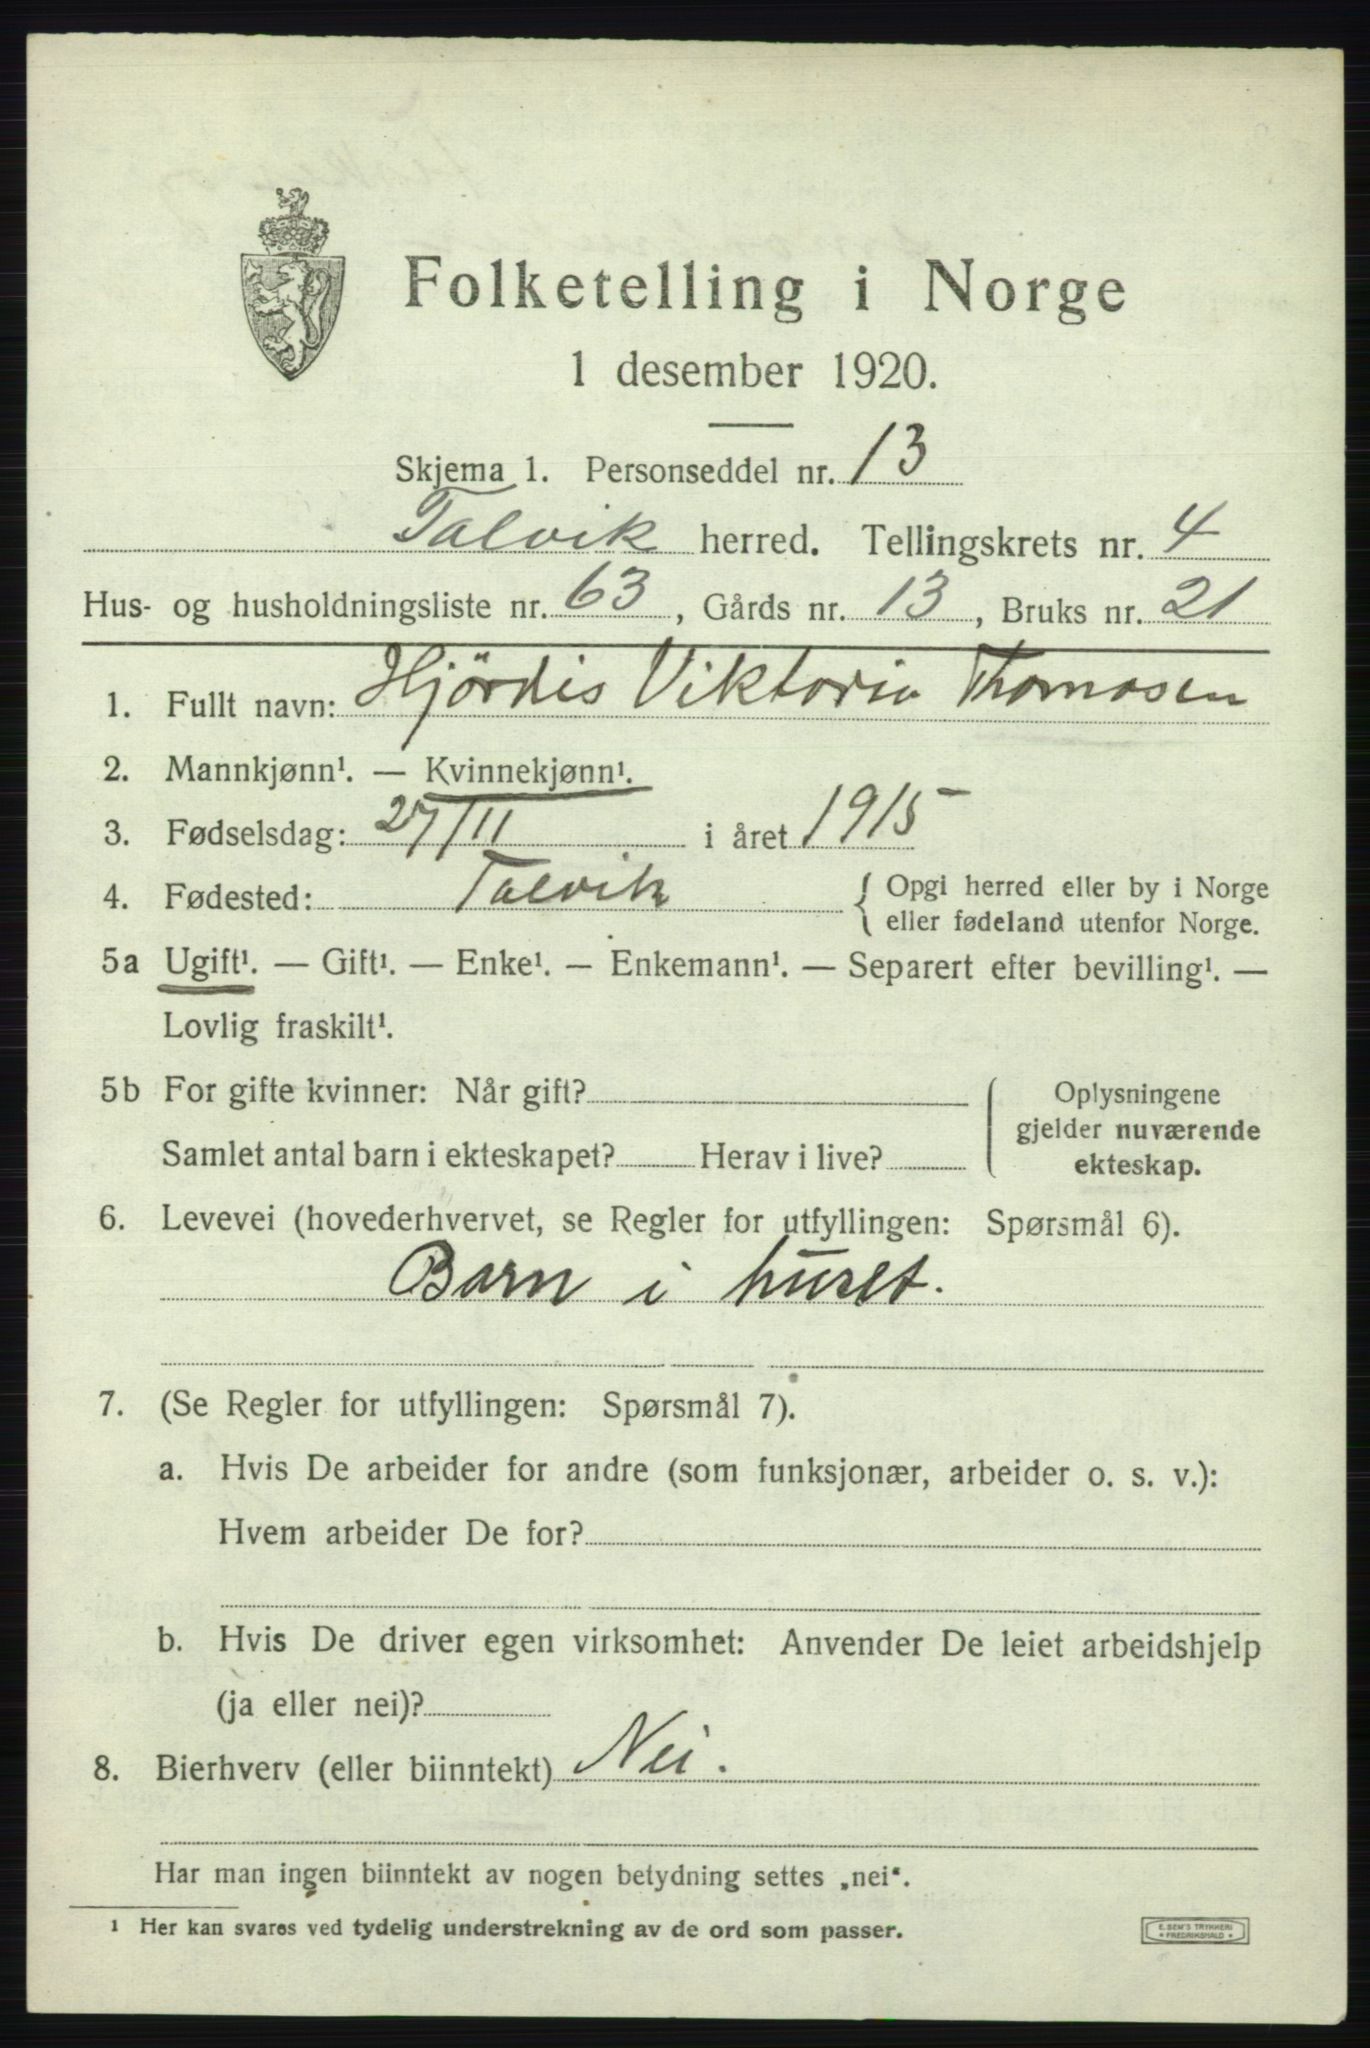 Folketelling i Norge
1 desember 1920.
Skjema 1. Personseddel nr. 13
Talvik herred. Tellingskrets nr. 4
Hus- og husholdningsliste nr. 63, Gårds nr. 13, Bruks nr. 21
1. Fullt navn: Hjördis Viktoria Thomasen
2. Mannkjønn¹. — Kvinnekjønn¹.
3. Fødselsdag: 27/11 i året 1915
4. Fødested: Talvik { Opgi herred eller by i Norge
eller fødeland utenfor Norge.
5a Ugift¹. — Gift¹. — Enke¹. — Enkemann¹. — Separert efter bevilling¹. —
Lovlig fraskilt¹.
5b For gifte kvinner: Når gift?
Samlet antal barn i ekteskapet? Herav i live?
Oplysningene
gjelder nuværende
ekteskap.
6. Levevei (hovederhvervet, se Regler for utfyllingen: Spørsmål 6).
Barn i huset.
7. (Se Regler for utfyllingen: Spørsmål 7).
a. Hvis De arbeider for andre (som funksjonær, arbeider o. s. v.):
Hvem arbeider De for?
b. Hvis De driver egen virksomhet: Anvender De leiet arbeidshjelp
(ja eller nei)?
8. Bierhverv (eller biinntekt) Nei.
Har man ingen biinntekt av nogen betydning settes „nei“.
¹ Her kan svares ved tydelig understrekning av de ord som passer.
E. SEM'S TRYKKERI
FREDRIKSHALD